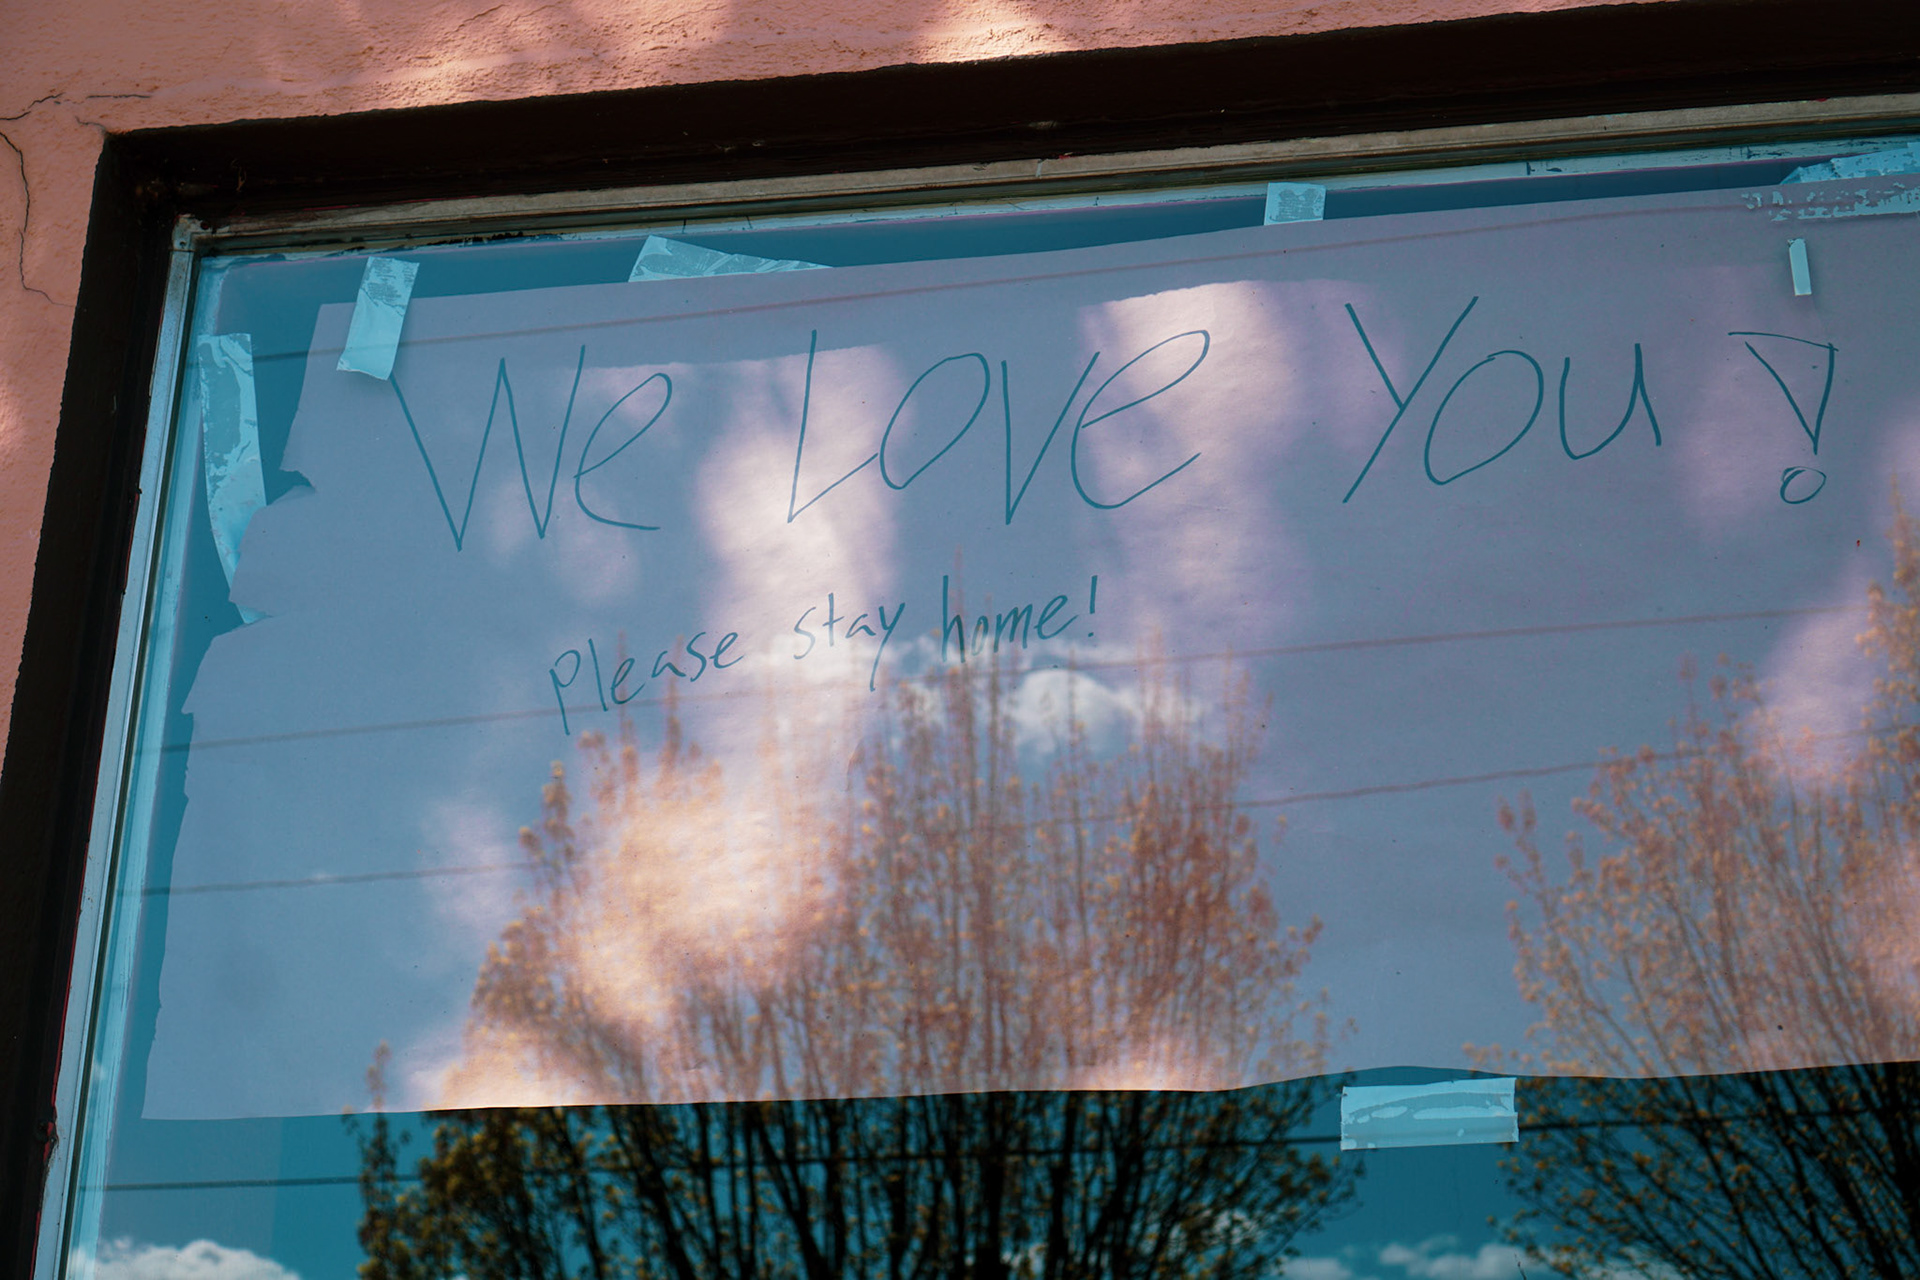 We Love You!
Please stay home!